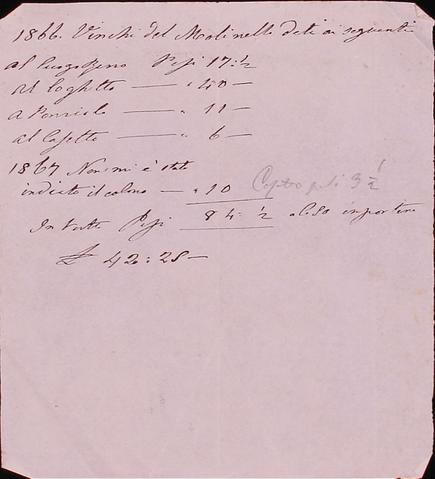 1866. Vinchi del Molinello dati ai seguenti
al Luogo Pesi 17:½
al Loghetto — " 40 —
a — " 11 —
al Casetto — " 6 —
1867 Non mi è stato
indicato il colono — " 10 pesi 3 ½
In tutto Pesi 84:½ a 50 importano
£ 42:25 —